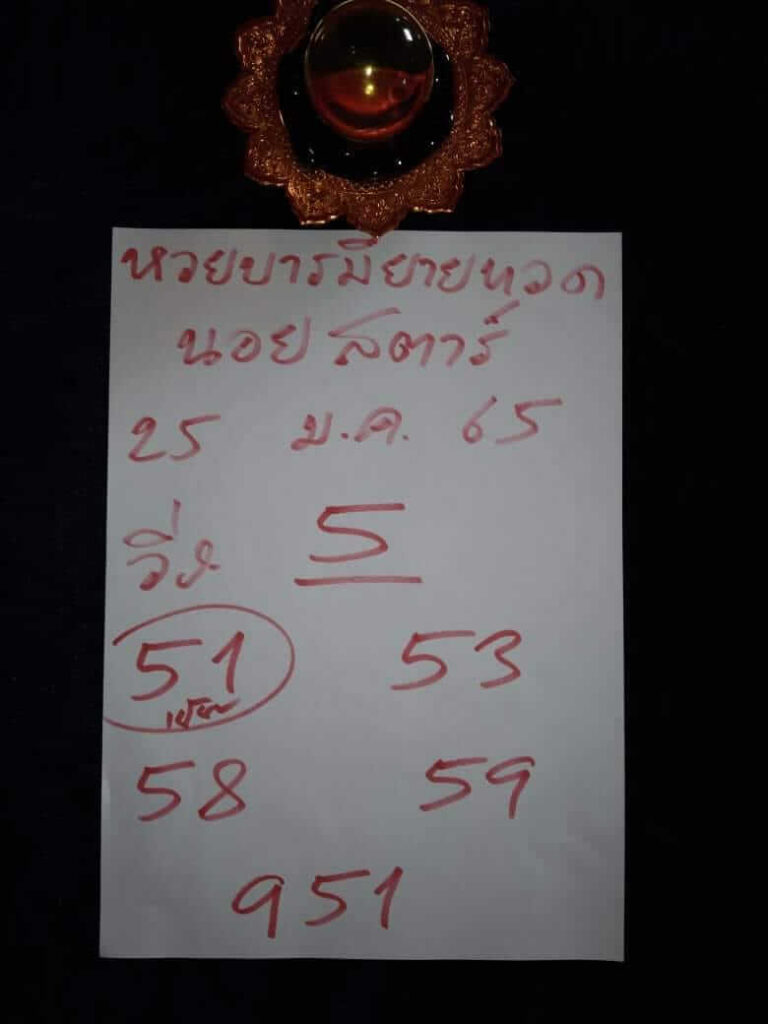 หวยบารมียายทวด
นอย สตาร์
25 ม.ค. 65
วิ่ง 5
51 53
58 59
951